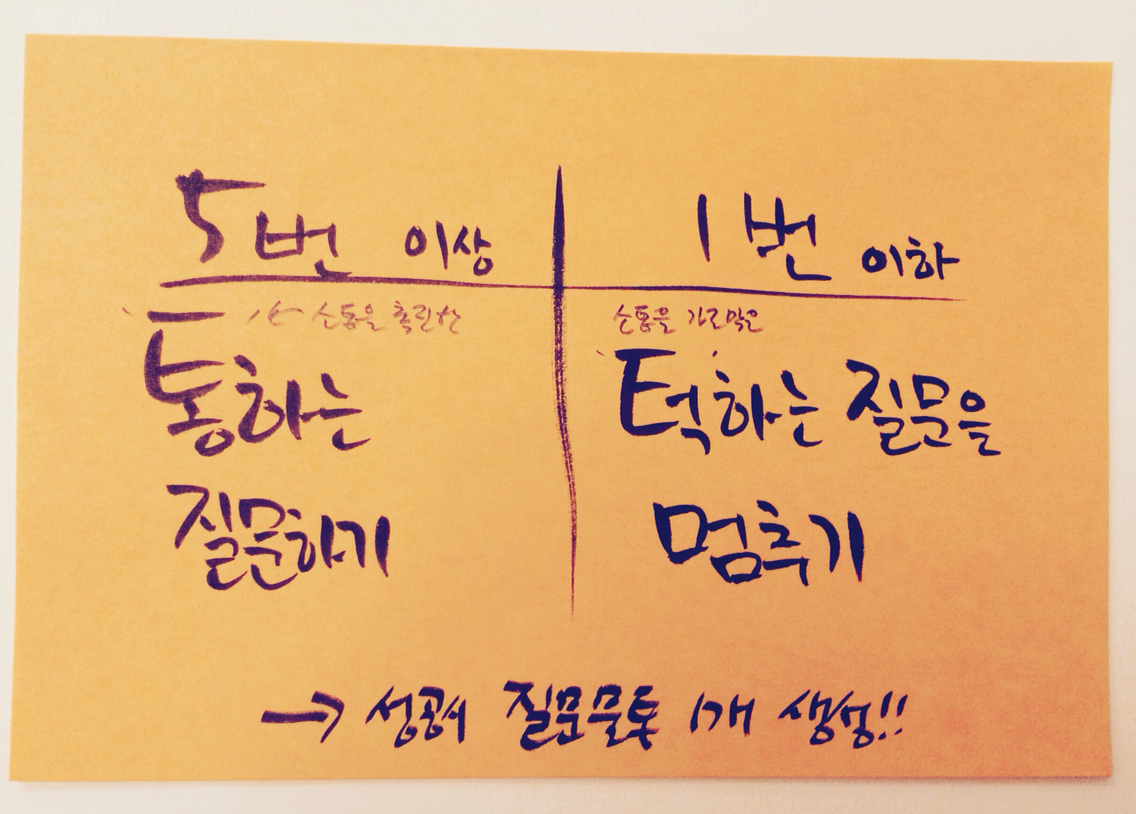 5번 이상
소통을 촉진한
통하는
질문하기
1번 이하
소통을 가로막은
턱하는 질문을
멈추기
→ 성공시 질문문통 1개 생성!!